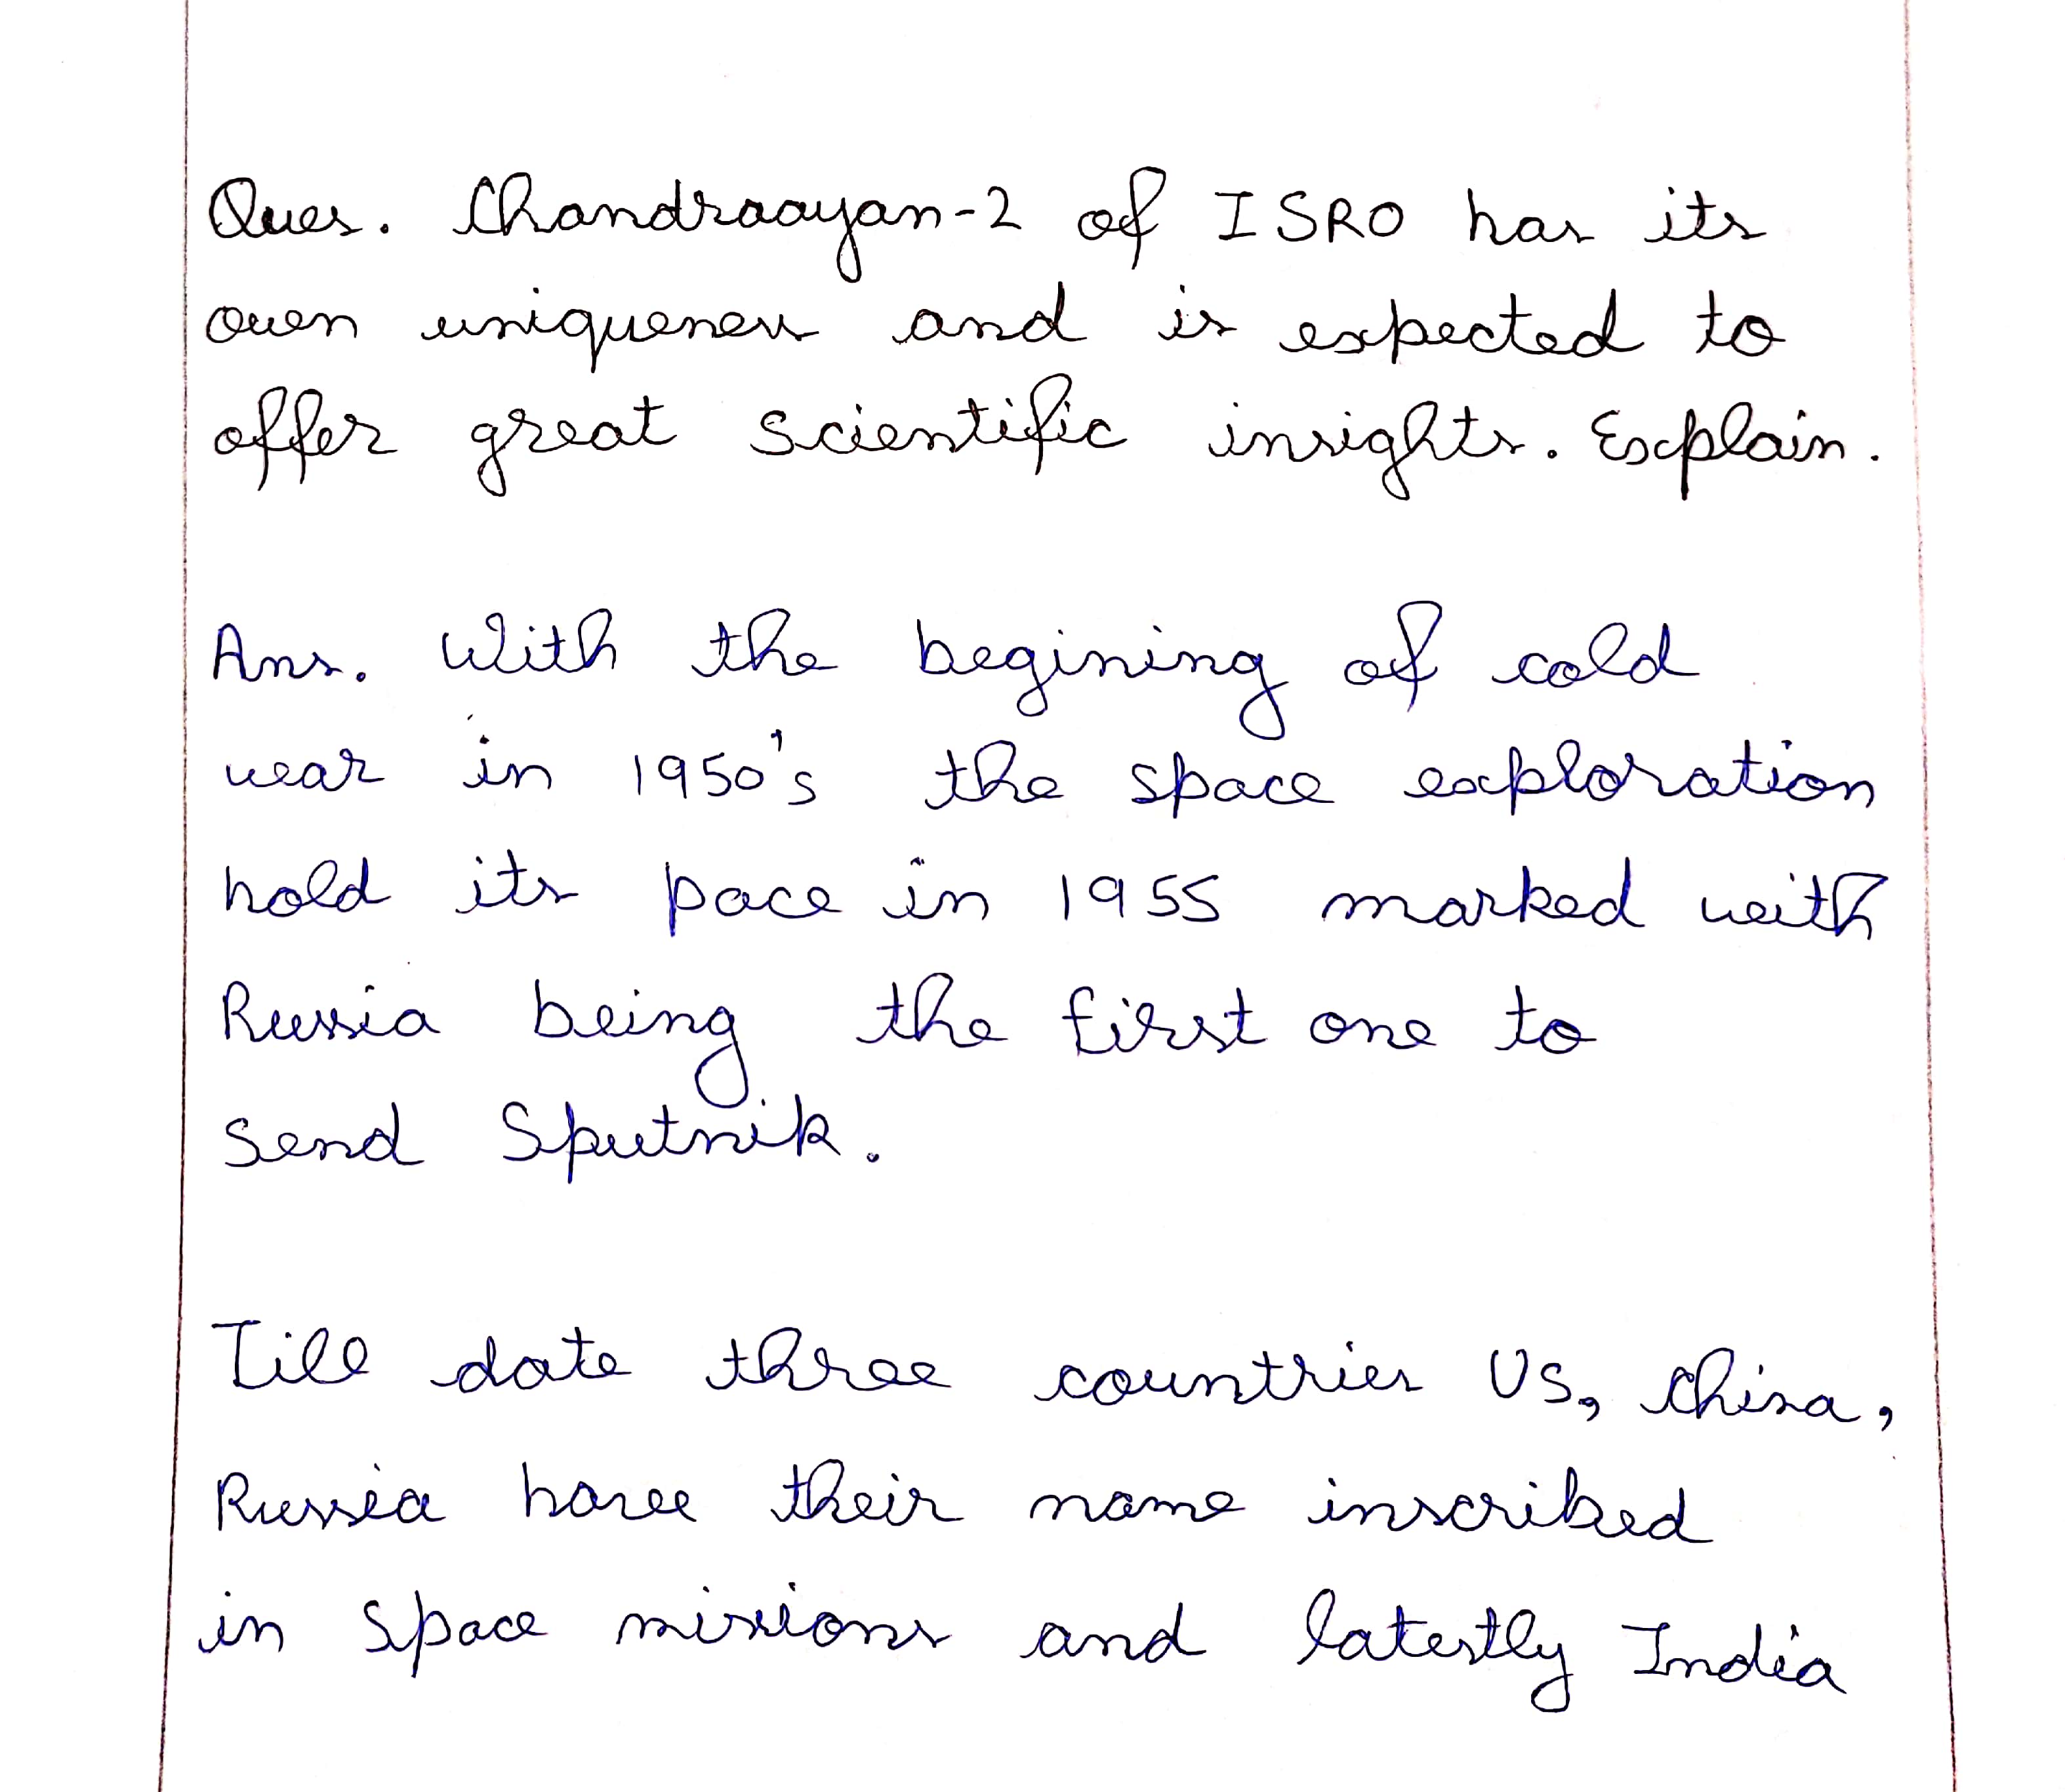 Ques. Chandraayan-2 of ISRO has its
own uniqueness and is expected to
offer great scientific insights. Explain.
Ans. With the begining of cold
war in 1950's the space exploration
hold its pace in 1955 marked with
Russia being the first one to
send Sputnik.
Till date three countries US, China,
Russia have their name inscribed
in space missions and latestly India